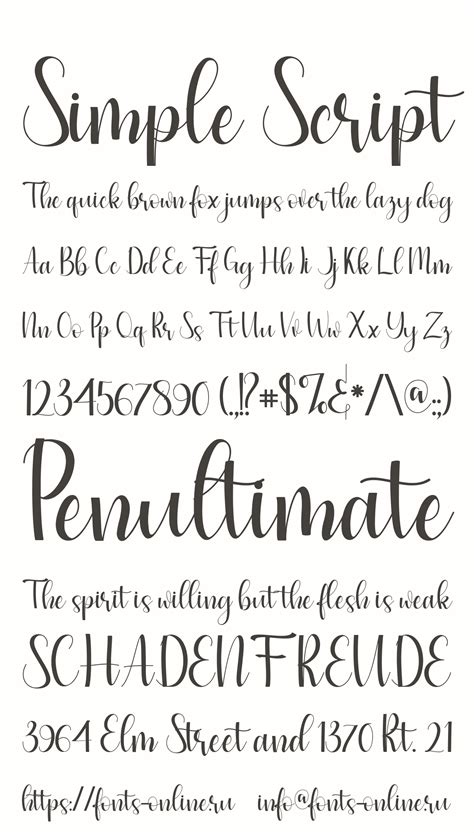 Simple Script
The quick brown fox jumps over the lazy dog
Aa Bb Cc Dd Ee Ff Gg Hh Ii Jj Kk Ll Mm
Nn Oo Pp Qq Rr Ss Tt Uu Vv Ww Xx Yy Zz
1234567890 (.,!?#$%&*/\@:;)
Penultimate
The spirit is willing but the flesh is weak
SCHADENFREUDE
3964 Elm Street and 1370 Rt. 21
https://fonts-online.ru info@fonts-online.ru